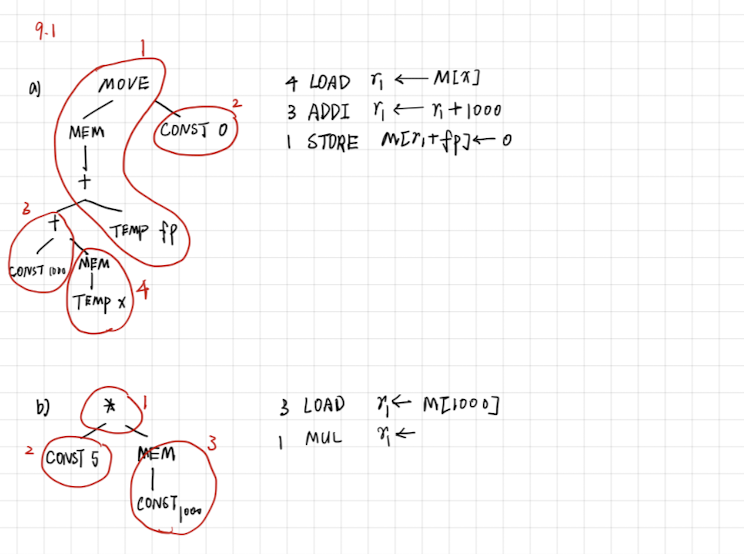 9.1
1
a) MOVE 2
MEM CONST 0
+
3 + TEMP fp
CONST 1000 MEM
TEMP x 4
4 LOAD r₁ ← M[x]
3 ADDI r₁ ← r₁ + 1000
1 STORE M[r₁ + fp] ← 0
b) * 1
2 CONST 5 MEM 3
CONST 1000
3 LOAD r₁ ← M[1000]
1 MUL r₁ ←